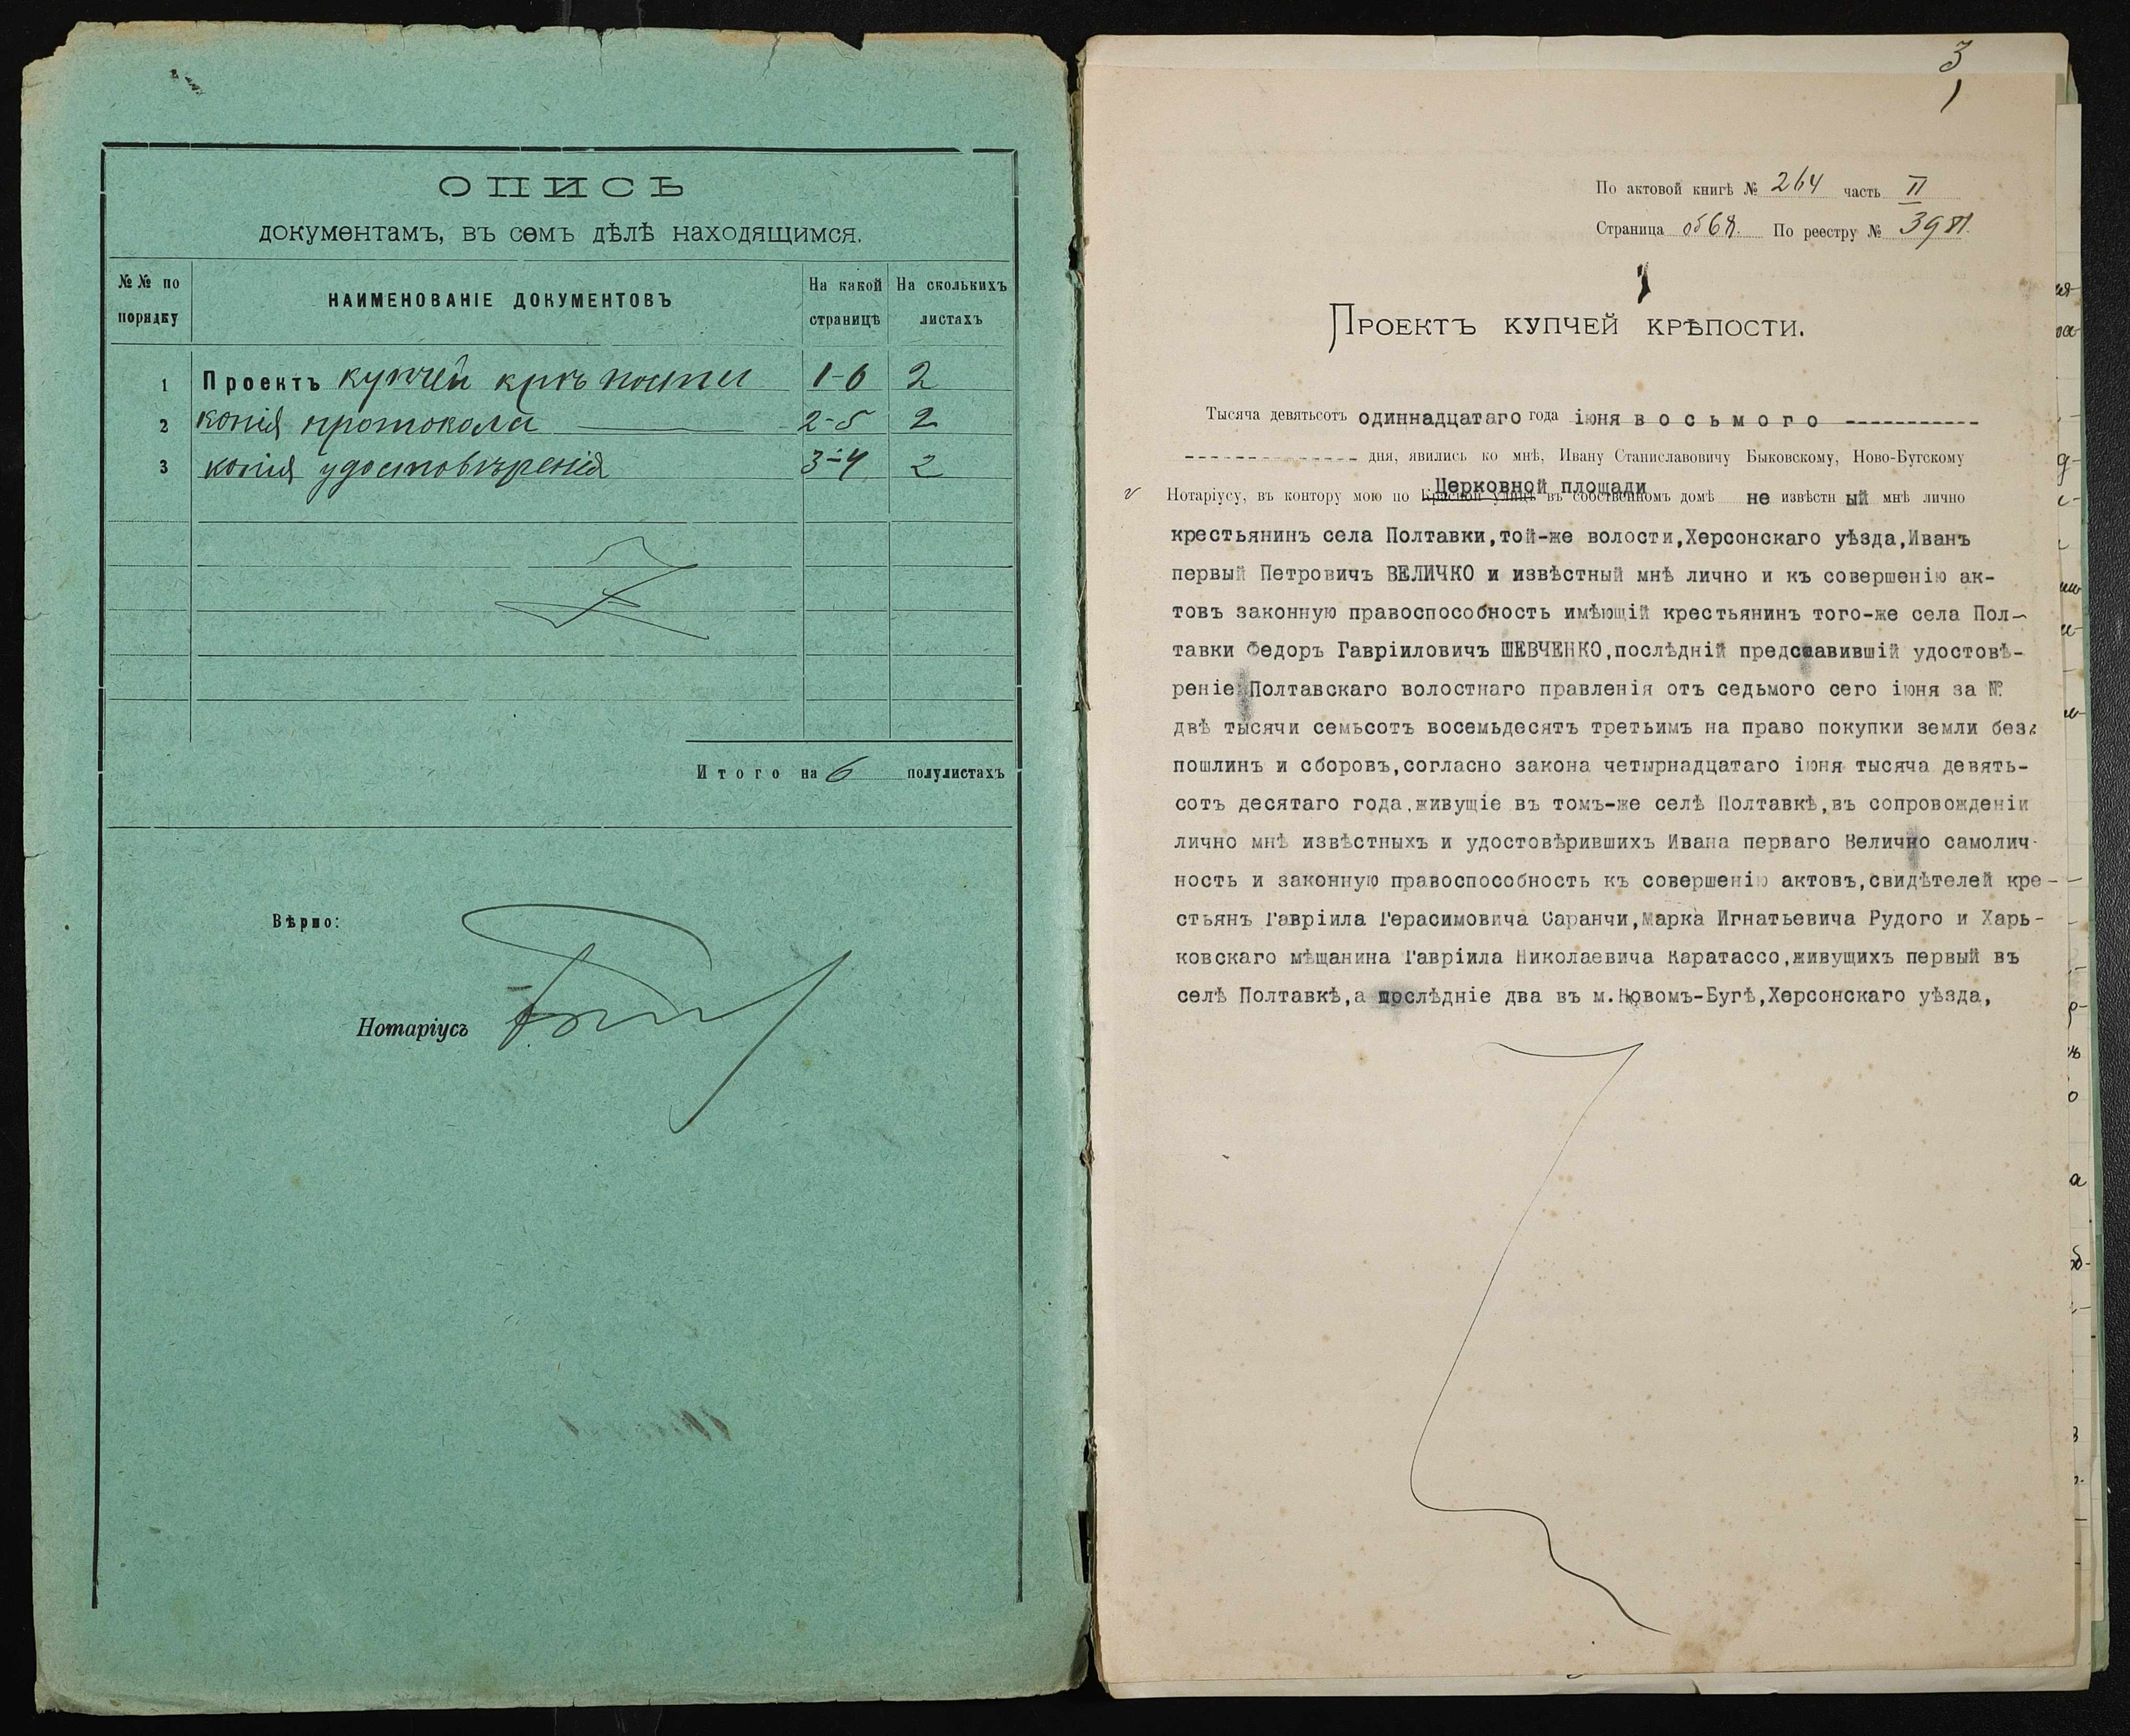 ОПИСЬ
документамъ, въ семъ дѣлѣ находящимся.
№№ по порядку
НАИМЕНОВАНІЕ ДОКУМЕНТОВЪ
На какой страницѣ
На сколькихъ листахъ
1 Проектъ купчей крѣпости 1-6 2
2 копія протокола 2-5 2
3 копія удостовѣренія 3-4 2
Итого на 6 полулистахъ
Вѣрно:
Нотаріусъ
3
1
По актовой книгѣ № 264 часть II
Страница об68. По реестру №
Проектъ купчей крѣпости.
Тысяча девятьсотъ одиннадцатаго года іюня восьмого -----------
-------------- дня, явились ко мнѣ, Ивану Станиславовичу Быковскому, Ново-Бугскому
Церковной площади
Нотаріусу, въ контору мою по Красной улицѣ въ собственномъ домѣ не извѣстн ый мнѣ лично
крестьянинъ села Полтавки,той-же волости,Херсонскаго уѣзда,Иванъ
первый Петровичъ ВЕЛИЧКО и извѣстный мнѣ лично и къ совершенію ак-
товъ законную правоспособность имѣющій крестьянинъ того-же села Пол-
тавки Федоръ Гавріиловичъ ШЕВЧЕНКО,послѣдній представившій удостовѣ-
реніе Полтавскаго волостнаго правленія отъ седьмого сего іюня за №
двѣ тысячи семьсотъ восемьдесятъ третьимъ на право покупки земли безъ
пошлинъ и сборовъ,согласно закона четырнадцатаго іюня тысяча девять-
сотъ десятаго года,живущіе въ томъ-же селѣ Полтавкѣ,въ сопровожденіи
лично мнѣ извѣстныхъ и удостовѣрившихъ Ивана перваго Величко самолич-
ность и законную правоспособность къ совершенію актовъ,свидѣтелей кре-
стьянъ Гавріила Герасимовича Саранчи,Марка Игнатьевича Рудого и Харь-
ковскаго мѣщанина Гавріила Николаевича Каратассо,живущихъ первый въ
селѣ Полтавкѣ,а послѣдніе два въ м.Новомъ-Бугѣ,Херсонскаго уѣзда,